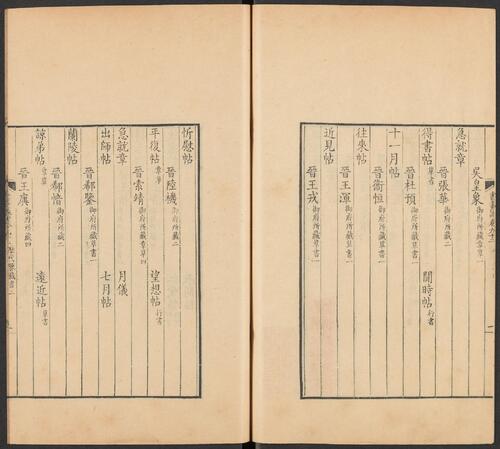 吳皇象御府所藏章草一
急就章
晉張華御府所藏草書一
得書帖草書 閒時帖行書
晉杜預御府所藏草書一
十一月帖
晉衞恒御府所藏草書一
往來帖
晉王渾御府所藏草書一
近見帖
晉王戎御府所藏草書一
忻慰帖
晉陸機御府所藏二
平復帖章草 望想帖行書
晉索靖御府所藏章草四
急就章 月儀
出師帖 七月帖
晉郗鑒御府所藏草書一
蘭陵帖
晉郗愔御府所藏二
諒弟帖章草 遠近帖草書
晉王廙御府所藏四